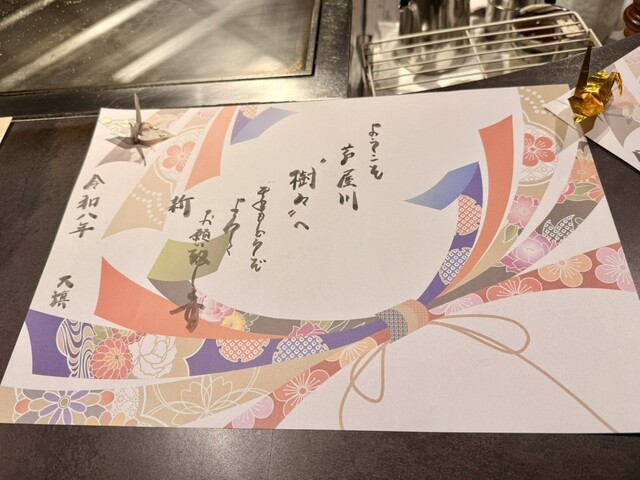 ようこそ
芦屋川
"樹々"へ
今年もどうぞ
よろしく
お願い致します
令和八年